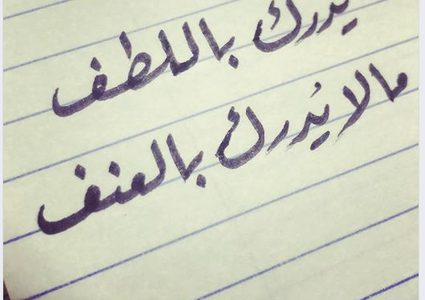 يدرك باللطف
مالا يُدرك بالعنف